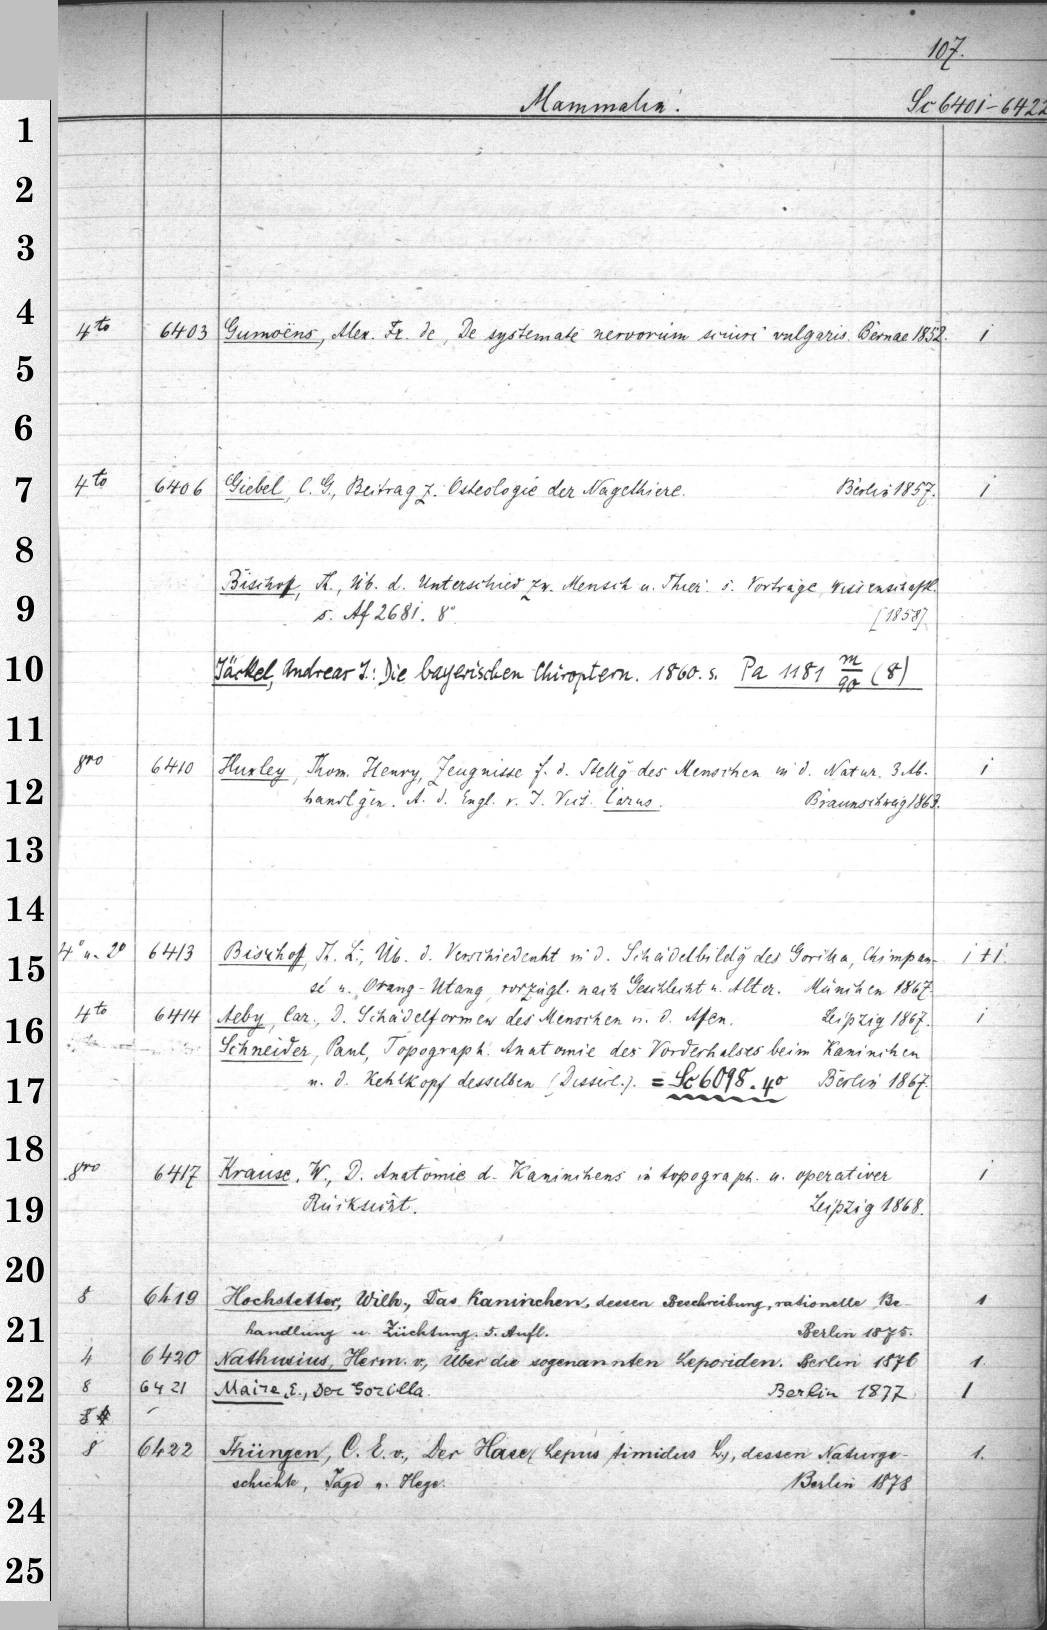 107.
Mammalia. Sc 6401-6422
1
2
3
4
4to 6403 Gumoëns, Alex. Fr. de, De systemate nervorum sciuri vulgaris. Bernae 1852. 1
5
6
7 4to 6406 Giebel, C. G., Beitrag z. Osteologie der Nagethiere. Berlin 1857. 1
8
Bischoff, Th., Üb. d. Unterschied zw. Mensch u. Thier. s. Vorträge, wissenschaftl.
9 s. Af 2681. 8° [1858]
10 Jäckel, Andreas J.: Die bayerischen Chiroptern. 1860. s. Pa 1181 m/90 (8)
11
8vo 6410 Huxley, Thom. Henry, Zeugnisse f. d. Stellg des Menschen in d. Natur. 3 Ab- 1
12 handlgen. A. d. Engl. v. J. Vict. Carus. Braunschweig 1863.
13
14
4° u. 2° 6413 Bischoff, Th. L., Üb. d. Verschiedenht in d. Schädelbildg des Gorilla, Chimpan- 1+1
15
sé u. Orang-Utang, vorzügl. nach Geschlecht u. Alter. München 1867.
4to 6414 Aeby, Car., D. Schädelformen des Menschen u. d. Affen. Leipzig 1867. 1
16
Schneider, Paul, Topograph. Anatomie des Vorderhalses beim Kaninchen
17 u. d. Kehlkopf desselben (Dissert.). = Sc 6098. 4° Berlin 1867.
18
8vo 6417 Krause, W., D. Anatomie d. Kaninchens in topograph. u. operativer 1
19 Rücksicht. Leipzig 1868.
20
8 6419 Hochstetter, Wilh., Das Kaninchen, dessen Beschreibung, rationelle Be- 1
21 handlung u. Züchtung. 5. Aufl. Berlin 1875.
4 6420 Nathusius, Herm. v., Über die sogenannten Leporiden. Berlin 1876 1.
22 8 6421 Maire, E., Der Gorilla. Berlin 1877 1
23 8 6422 Thüngen, C. E. v., Der Hase (Lepus timidus L.), dessen Naturge- 1.
schichte, Jagd u. Hege. Berlin 1878
24
25